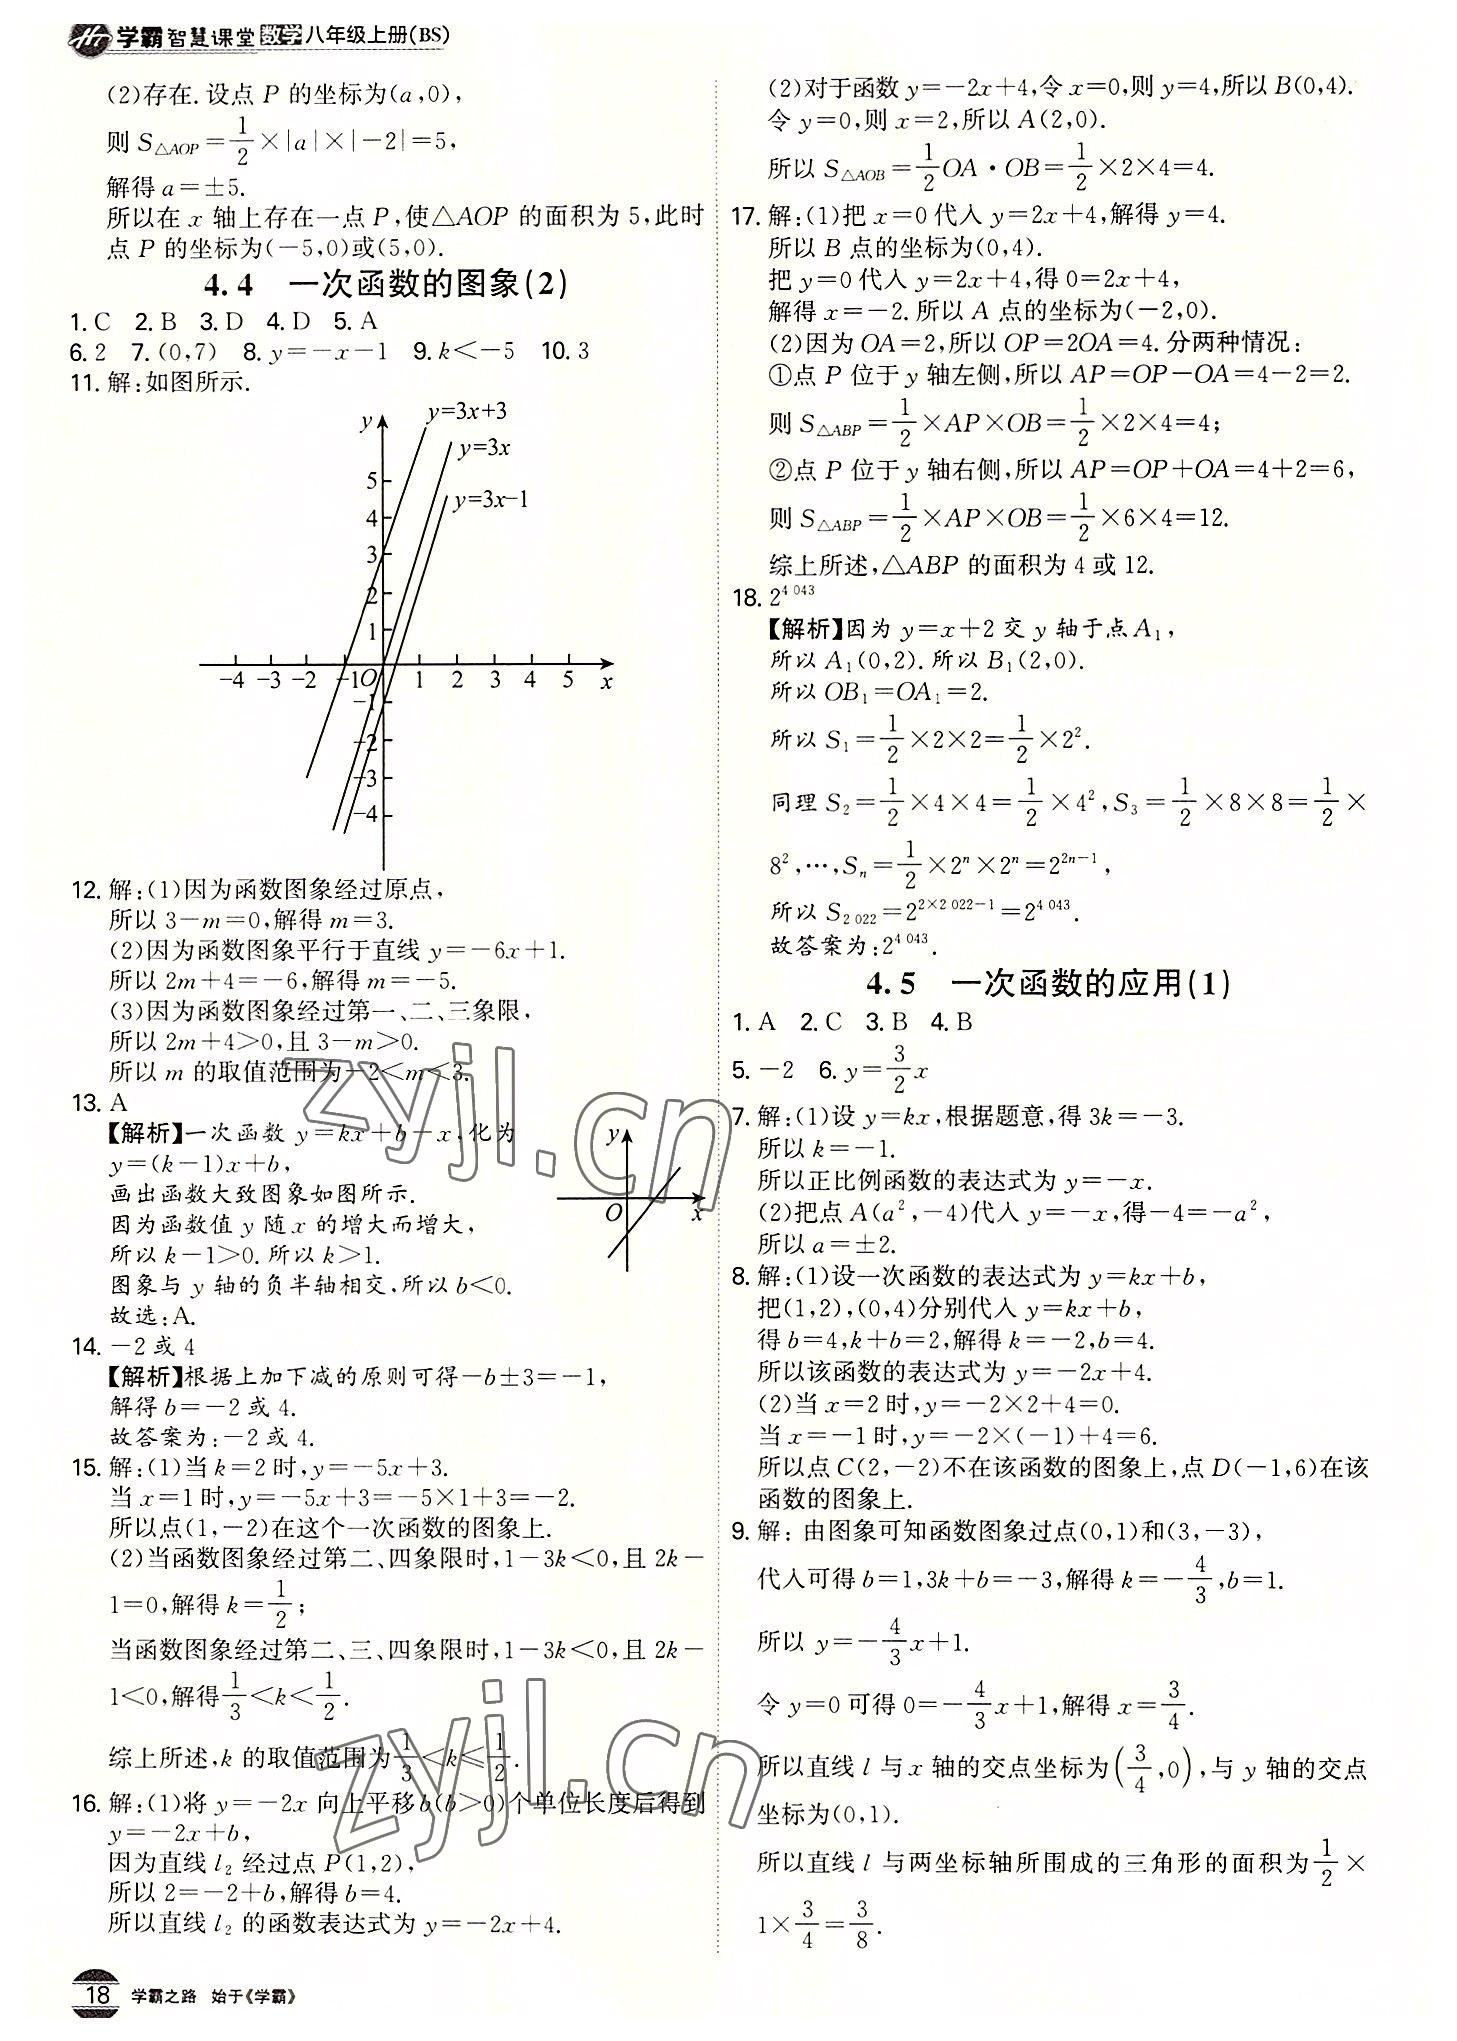 学霸智慧课堂 数学 八年级上册(BS)
(2)存在.设点 P 的坐标为(a,0),
则 S△AOP=1/2×|a|×|-2|=5,
解得 a=±5.
所以在 x 轴上存在一点 P,使△AOP 的面积为 5,此时
点 P 的坐标为(-5,0)或(5,0).
4.4 一次函数的图象(2)
1. C 2. B 3. D 4. D 5. A
6. 2 7. (0,7) 8. y=-x-1 9. k<-5 10. 3
11. 解:如图所示.
y y=3x+3
y=3x
y=3x-1
5
4
3
2
1
-4 -3 -2 -1 O 1 2 3 4 5 x
-1
-2
-3
-4
12. 解:(1)因为函数图象经过原点,
所以 3-m=0,解得 m=3.
(2)因为函数图象平行于直线 y=-6x+1.
所以 2m+4=-6,解得 m=-5.
(3)因为函数图象经过第一、二、三象限,
所以 2m+4>0,且 3-m>0.
所以 m 的取值范围为-2<m<3.
13. A
【解析】一次函数 y=kx+b-x,化为
y=(k-1)x+b,
画出函数大致图象如图所示.
因为函数值 y 随 x 的增大而增大,
所以 k-1>0.所以 k>1.
图象与 y 轴的负半轴相交,所以 b<0.
故选:A.
y
O x
14. -2 或 4
【解析】根据上加下减的原则可得-b±3=-1,
解得 b=-2 或 4.
故答案为:-2 或 4.
15. 解:(1)当 k=2 时,y=-5x+3.
当 x=1 时,y=-5x+3=-5×1+3=-2.
所以点(1,-2)在这个一次函数的图象上.
(2)当函数图象经过第二、四象限时,1-3k<0,且 2k-
1=0,解得 k=1/2;
当函数图象经过第二、三、四象限时,1-3k<0,且 2k-
1<0,解得1/3<k<1/2.
综上所述,k 的取值范围为1/3<k≤1/2.
16. 解:(1)将 y=-2x 向上平移 b(b>0)个单位长度后得到
y=-2x+b,
因为直线 l₂ 经过点 P(1,2),
所以 2=-2+b,解得 b=4.
所以直线 l₂ 的函数表达式为 y=-2x+4.
(2)对于函数 y=-2x+4,令 x=0,则 y=4,所以 B(0,4).
令 y=0,则 x=2,所以 A(2,0).
所以 S△AOB=1/2OA·OB=1/2×2×4=4.
17. 解:(1)把 x=0 代入 y=2x+4,解得 y=4.
所以 B 点的坐标为(0,4).
把 y=0 代入 y=2x+4,得 0=2x+4,
解得 x=-2.所以 A 点的坐标为(-2,0).
(2)因为 OA=2,所以 OP=2OA=4.分两种情况:
①点 P 位于 y 轴左侧,所以 AP=OP-OA=4-2=2.
则 S△ABP=1/2×AP×OB=1/2×2×4=4;
②点 P 位于 y 轴右侧,所以 AP=OP+OA=4+2=6,
则 S△ABP=1/2×AP×OB=1/2×6×4=12.
综上所述,△ABP 的面积为 4 或 12.
18. 2^4 043
【解析】因为 y=x+2 交 y 轴于点 A₁,
所以 A₁(0,2).所以 B₁(2,0).
所以 OB₁=OA₁=2.
所以 S₁=1/2×2×2=1/2×2².
同理 S₂=1/2×4×4=1/2×4²,S₃=1/2×8×8=1/2×
8²,…,Sₙ=1/2×2ⁿ×2ⁿ=2^(2n-1),
所以 S₂ ₀₂₂=2^(2×2 022-1)=2^4 043.
故答案为:2^4 043.
4.5 一次函数的应用(1)
1. A 2. C 3. B 4. B
5. -2 6. y=3/2x
7. 解:(1)设 y=kx,根据题意,得 3k=-3.
所以 k=-1.
所以正比例函数的表达式为 y=-x.
(2)把点 A(a²,-4)代入 y=-x,得-4=-a²,
所以 a=±2.
8. 解:(1)设一次函数的表达式为 y=kx+b,
把(1,2),(0,4)分别代入 y=kx+b,
得 b=4,k+b=2,解得 k=-2,b=4.
所以该函数的表达式为 y=-2x+4.
(2)当 x=2 时,y=-2×2+4=0.
当 x=-1 时,y=-2×(-1)+4=6.
所以点 C(2,-2)不在该函数的图象上,点 D(-1,6)在该
函数的图象上.
9. 解:由图象可知函数图象过点(0,1)和(3,-3),
代入可得 b=1,3k+b=-3,解得 k=-4/3,b=1.
所以 y=-4/3x+1.
令 y=0 可得 0=-4/3x+1,解得 x=3/4.
所以直线 l 与 x 轴的交点坐标为(3/4,0),与 y 轴的交点
坐标为(0,1).
所以直线 l 与两坐标轴所围成的三角形的面积为1/2×
1×3/4=3/8.
18 学霸之路 始于《学霸》
zyjl.cn
zyjl.cn